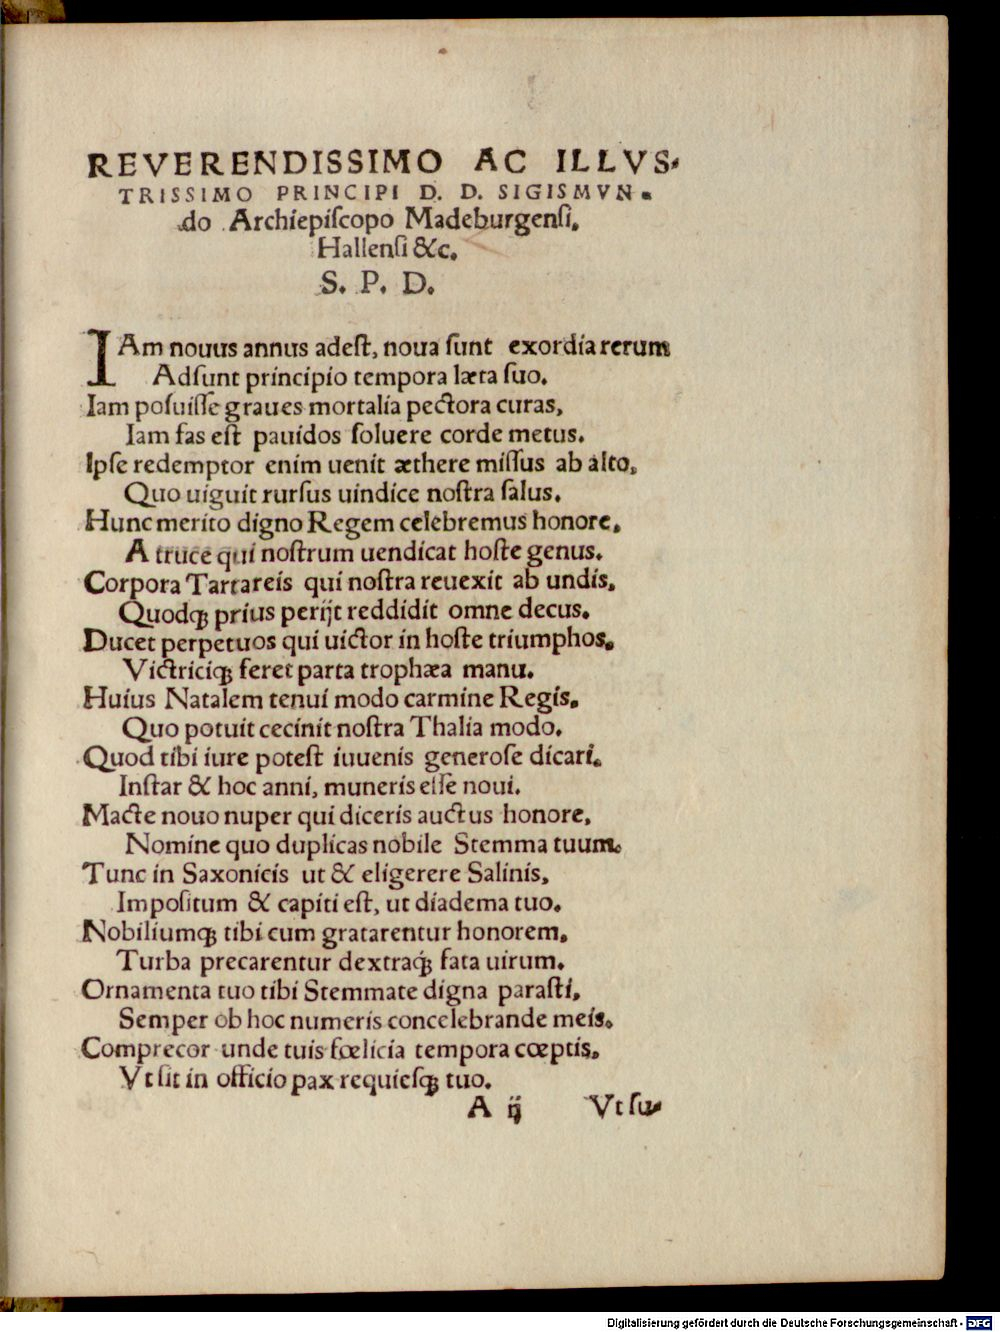 REVERENDISSIMO AC ILLVS-
TRISSIMO PRINCIPI D. D. SIGISMVN-
do Archiepiſcopo Madeburgenſi,
Hallenſi &c.
S. P. D.
IAm nouus annus adeſt, noua ſunt exordia rerum
Adſunt principio tempora læta ſuo.
Iam poſuiſſe graues mortalia pectora curas,
Iam fas eſt pauidos ſoluere corde metus.
Ipſe redemptor enim uenit æthere miſſus ab alto,
Quo uiguit rurſus uindice noſtra ſalus.
Hunc merito digno Regem celebremus honore,
A truce qui noſtrum uendicat hoſte genus.
Corpora Tartareis qui noſtra reuexit ab undis,
Quodq; prius perijt reddidit omne decus.
Ducet perpetuos qui uictor in hoſte triumphos,
Victriciq; feret parta trophæa manu.
Huius Natalem tenui modo carmine Regis,
Quo potuit cecinit noſtra Thalia modo.
Quod tibi iure poteſt iuuenis generoſe dicari,
Inſtar & hoc anni, muneris eſſe noui.
Macte nouo nuper qui diceris auctus honore,
Nomine quo duplicas nobile Stemma tuum.
Tunc in Saxonicis ut & eligerere Salinis,
Impoſitum & capiti eſt, ut diadema tuo.
Nobiliumq; tibi cum gratarentur honorem,
Turba precarentur dextraq́; fata uirum.
Ornamenta tuo tibi Stemmate digna paraſti,
Semper ob hoc numeris concelebrande meis.
Comprecor unde tuis fœlicia tempora cœptis,
Vt ſit in officio pax requieſq; tuo.
A ij Vt ſu-
Digitalisierung gefördert durch die Deutsche Forschungsgemeinschaft - DFG